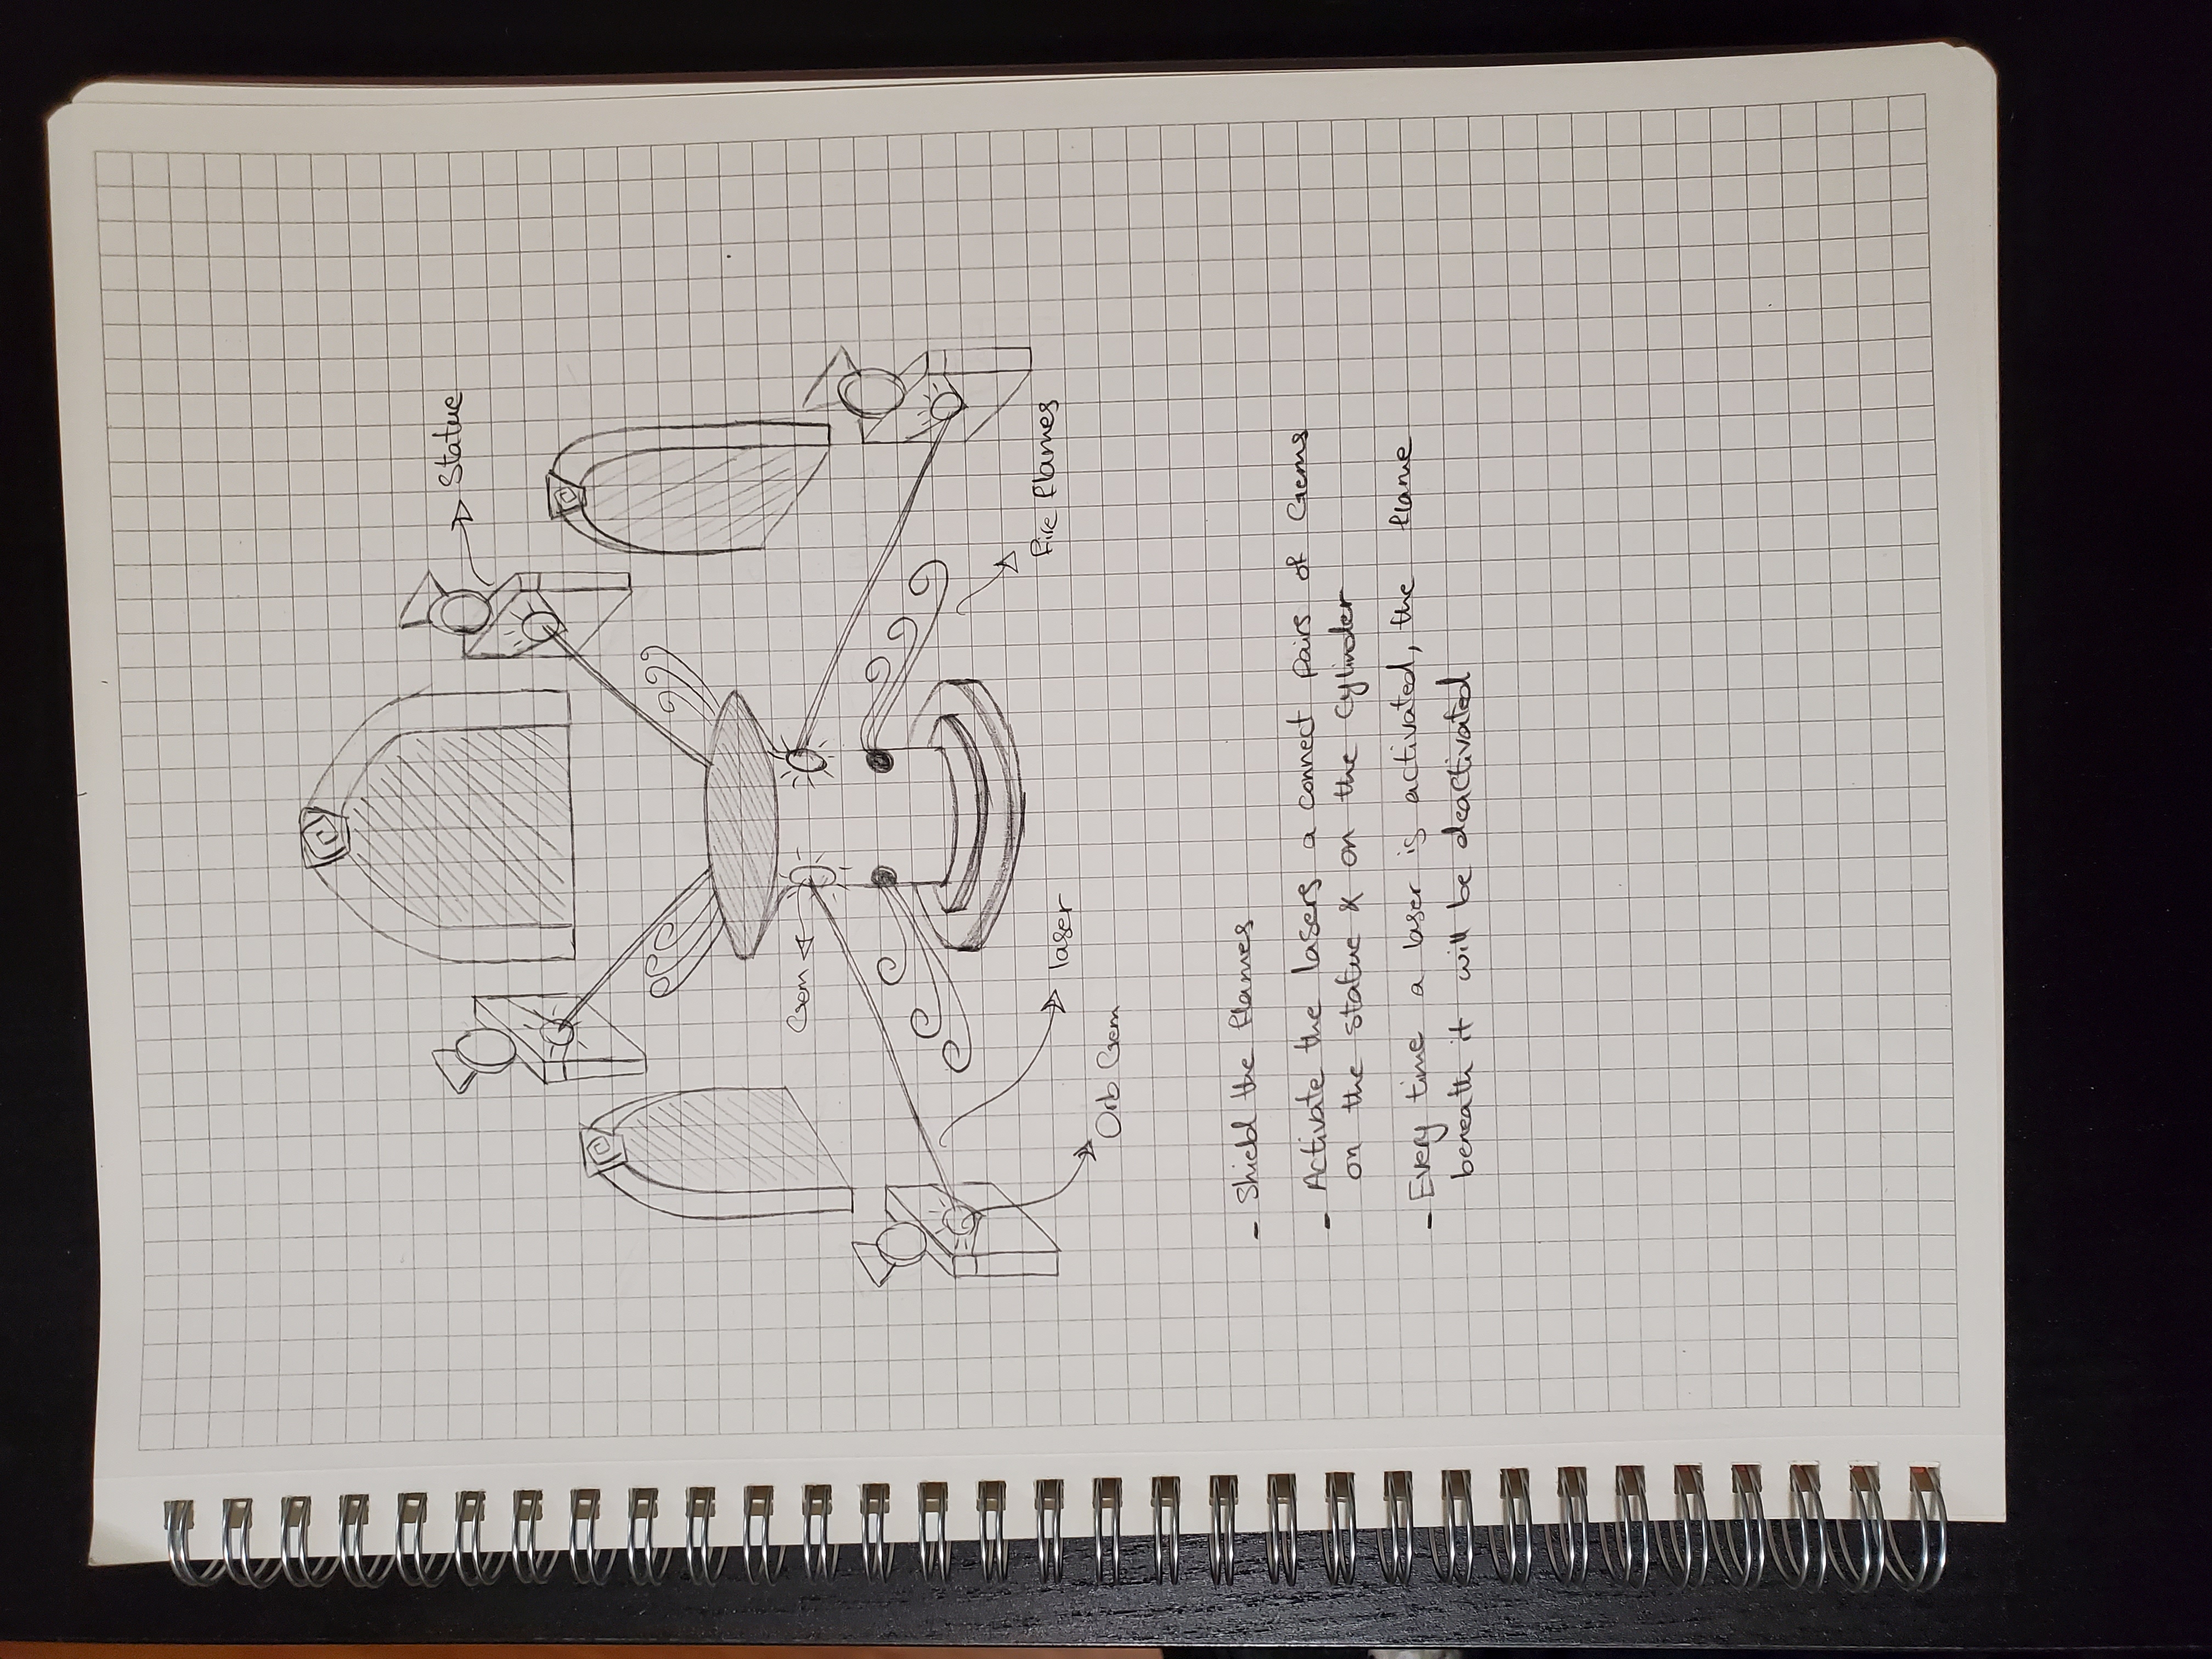 Statue
Gem
fire flames
laser
Orb Gem
- Shield the flames
- Activate the lasers a connect pairs of Gems
on the statue & on the cylinder
- Every time a laser is activated, the flame
beneath it will be deactivated